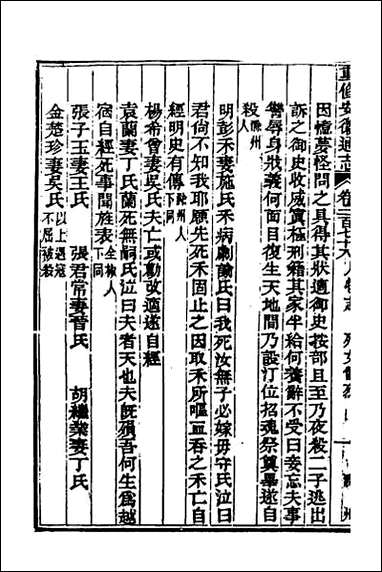 重修安徽通志 卷二百七十六 人物志 列女
因憶夢怪問之具得其狀適御史按部且至乃夜殺二子逃出
訴之御史收威寘極刑籍其家半給何養辭不受曰妾忘夫事
讐辱身狀義何面目復生天地間乃設汀位招魂祭奠畢遂自
殺滁州人
明彭禾妻施氏禾病劇諭氏曰我死汝無子必嫁毋守氏泣曰
君尙不知我耶願先死禾固止之因取禾所嘔血吞之禾亡自
經明史有傳滁州人下同
楊希曾妻吳氏夫亡或勸改適遂自經
袁蘭妻丁氏蘭死無嗣氏泣曰夫者天也夫旣殞吾何生爲越
宿自經死事聞旌表全椒人下同
張子玉妻王氏 張君常妻晉氏 胡繼業妻丁氏
金楚珍妻吳氏以上遇寇不屈被殺